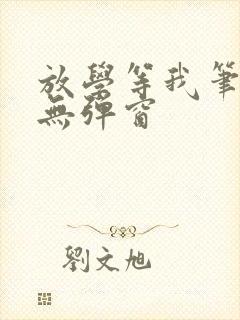 放學等我筆
無彈窗
劉文旭